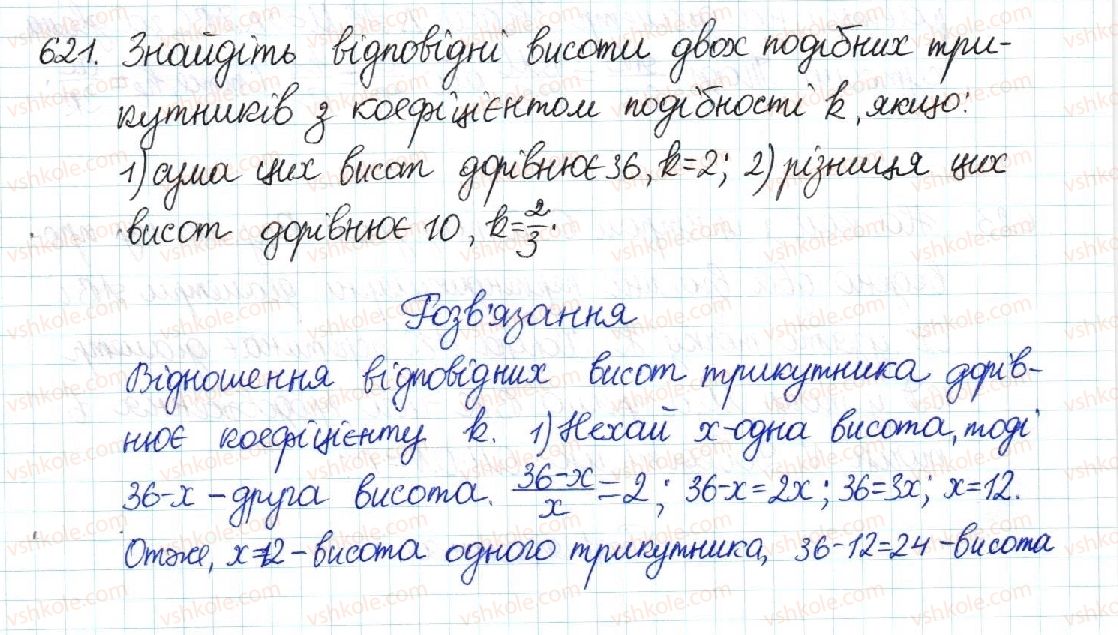 621. Знайдіть відповідні висоти двох подібних три-
кутників з коефіцієнтом подібності k, якщо:
1) сума цих висот дорівнює 36, k=2; 2) різниця цих
висот дорівнює 10, k=2/3.
Розв'язання
Відношення відповідних висот трикутника дорів-
нює коефіцієнту k. 1) Нехай x-одна висота, тоді
36-x - друга висота. (36-x)/x=2; 36-x=2x; 36=3x; x=12.
Отже, x=12 - висота одного трикутника, 36-12=24 - висота